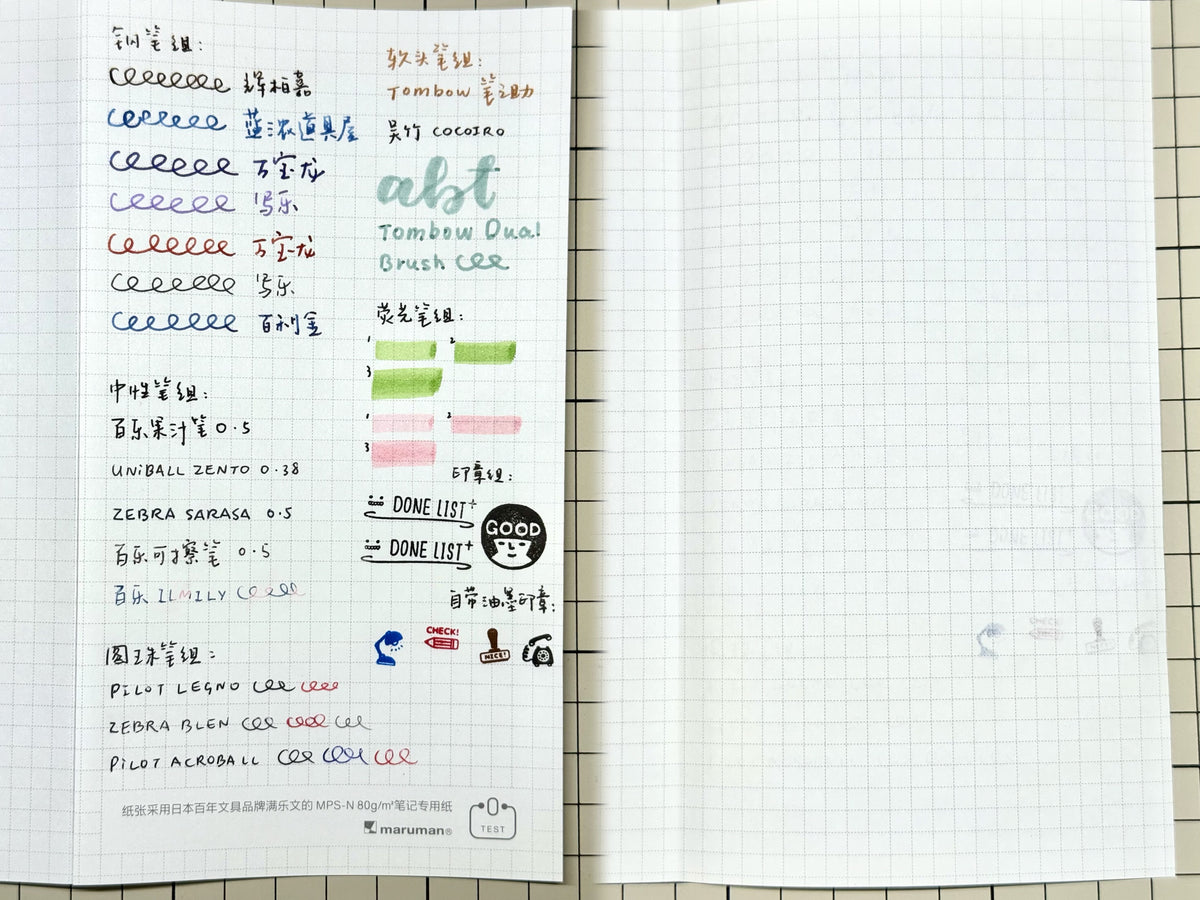 钢笔组:
辉柏嘉
蓝浓道具屋
万宝龙
写乐
万宝龙
写乐
百利金
中性笔组:
百乐果汁笔 0.5
UNIBALL ZENTO 0.38
ZEBRA SARASA 0.5
百乐可擦笔 0.5
百乐 ILMILY
圆珠笔组:
PILOT LEGNO
ZEBRA BLEN
PILOT ACROBALL
软头笔组:
Tombow 笔之助
吴竹 COCOIRO
abt
Tombow Dual
Brush
荧光笔组:
1 2
3
1 2
3
印章组:
DONE LIST+
GOOD
DONE LIST+
自带油墨印章:
CHECK!
NICE!
纸张采用日本百年文具品牌满乐文的 MPS-N 80g/m²笔记专用纸
maruman®
TEST